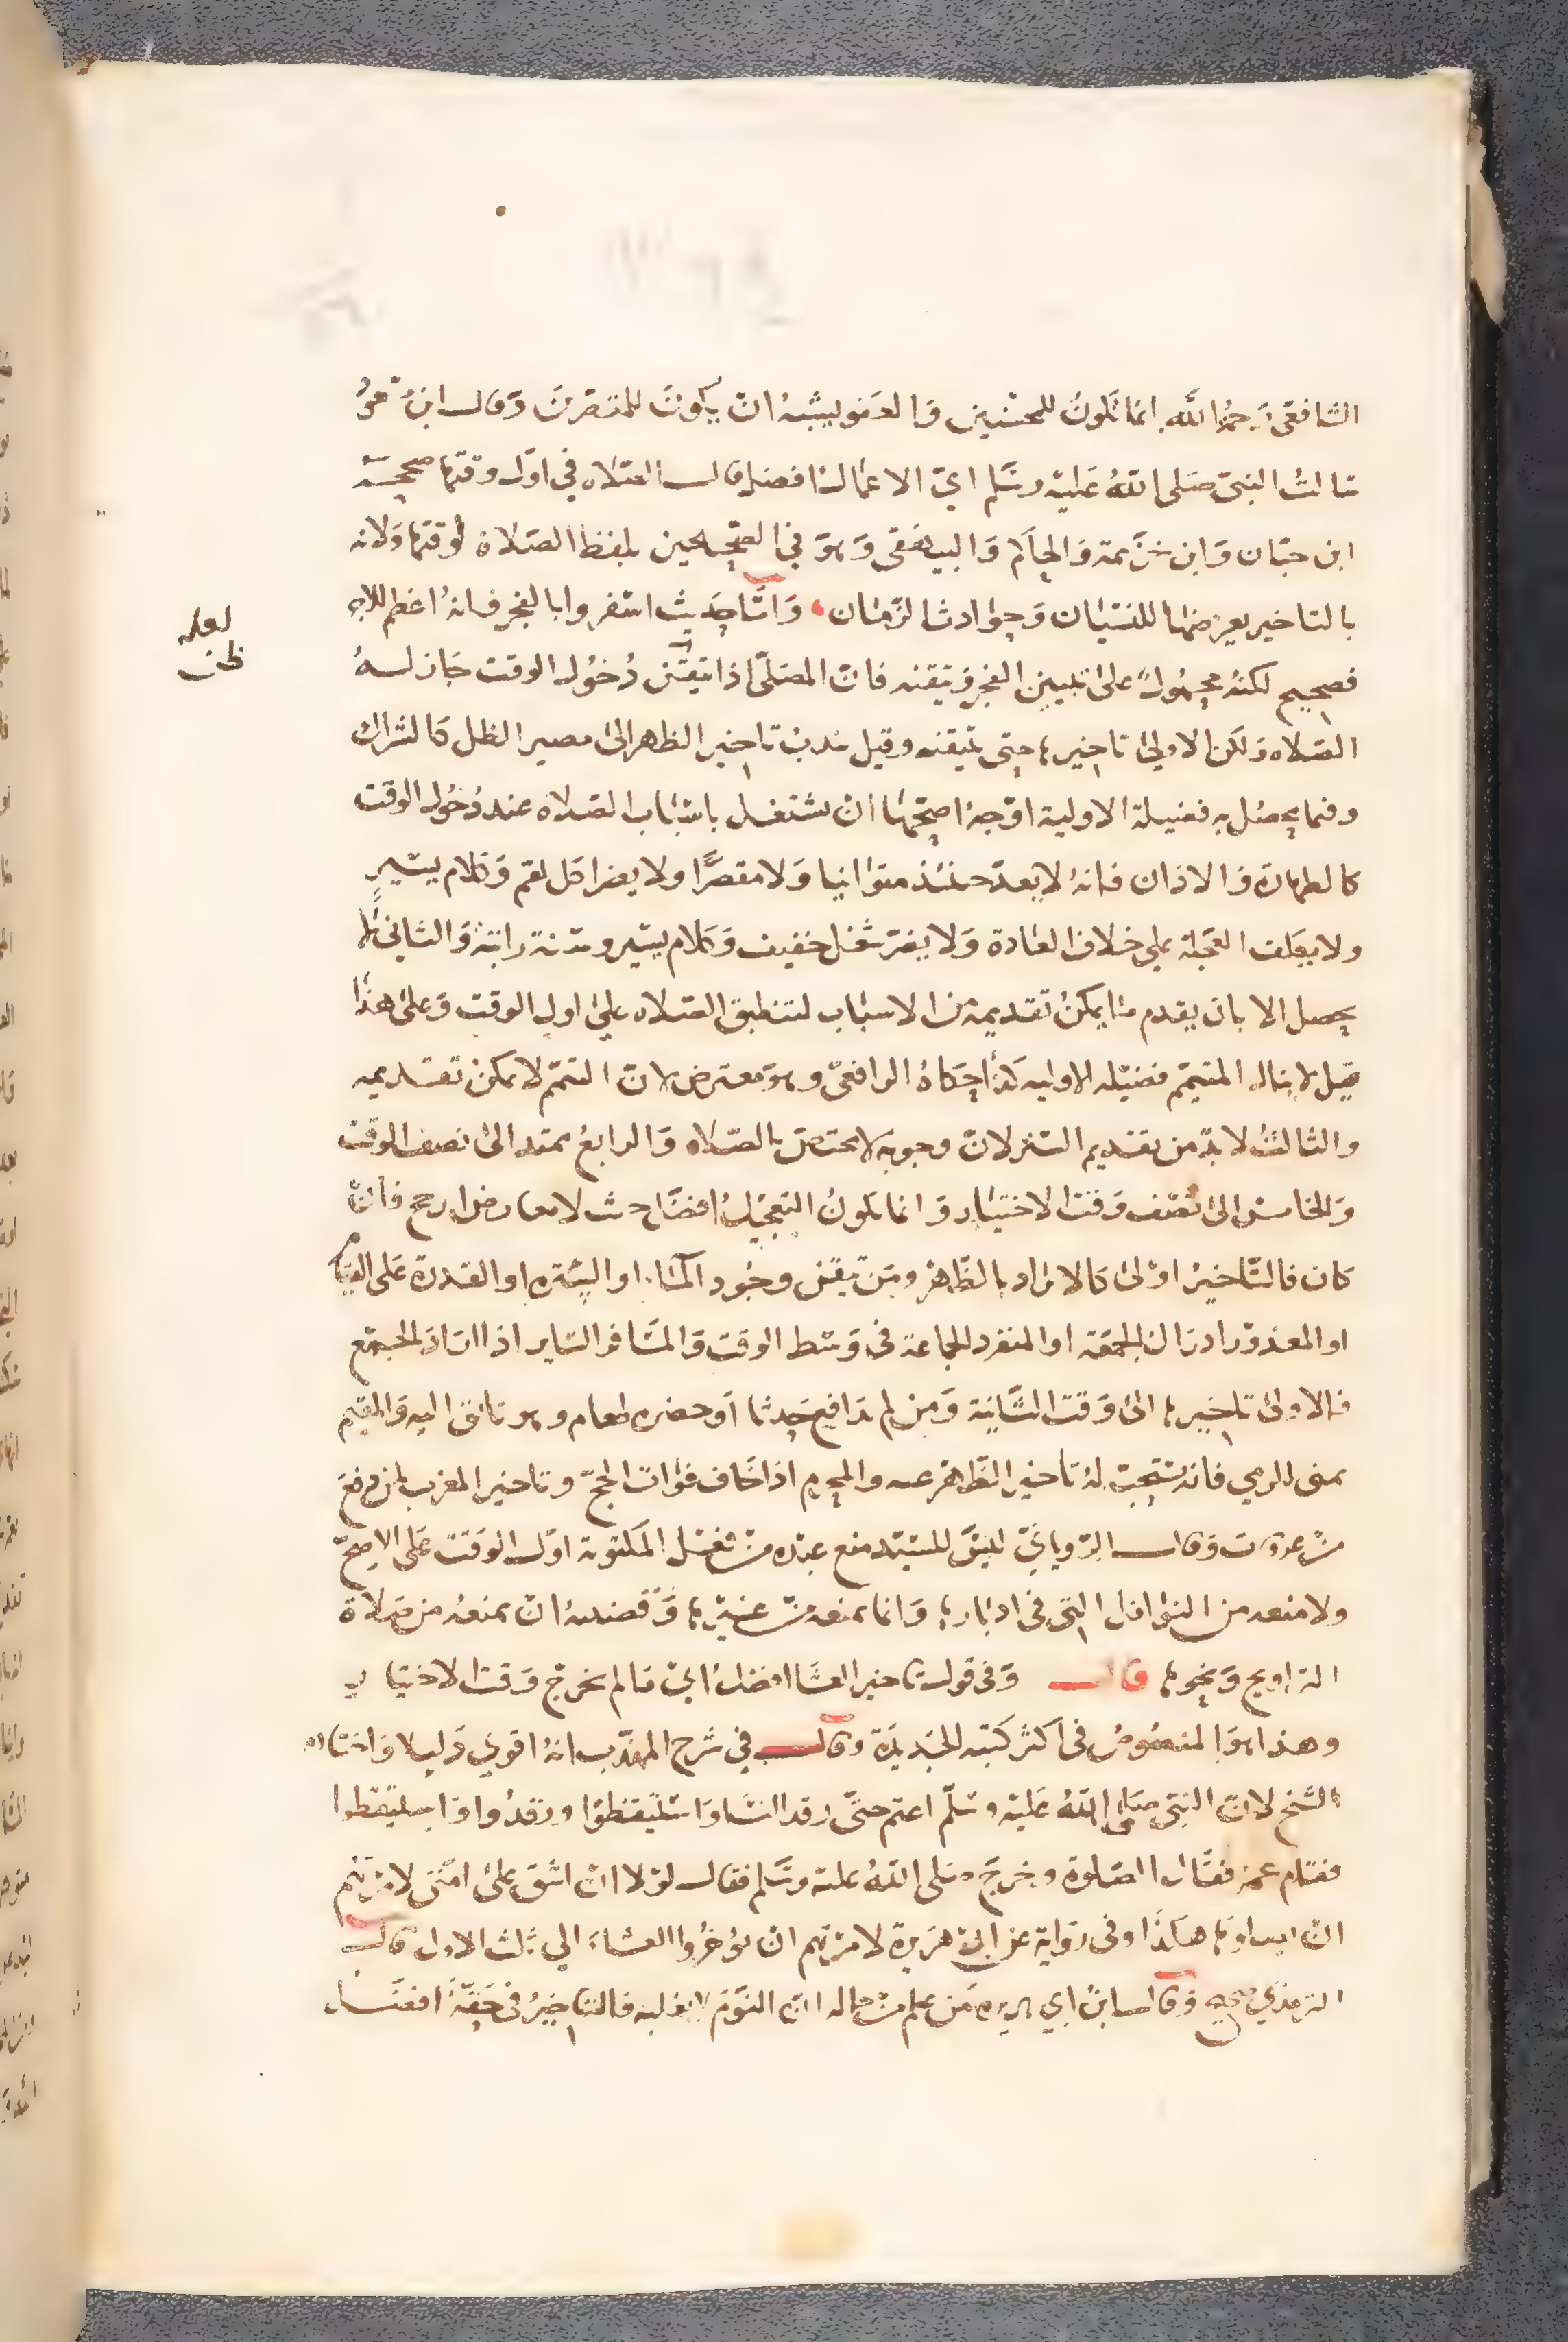 الشافعي رَحمهُ الله انما تكونُ للمحسنين وَالعَفو يشبهُ ان يكونَ للمقصرينَ وَقال ابن
سالتُ النبيّ صَلى اللهُ عَليه وسَلم ايّ الاعمال افضل قال الصَلاه في اوّل وقتها صححه
ابن حبّان وَابن خزَيمة وَالحاكم وَالبيهَقى وَهوَ في الصّحيحين بلفظ الصَلاة لوقتها وَلانه
بالتاخير يعرضها للنسيَان وَحوَادث الزمَان وَامَّا حَديث اسفروا بالفجر فانهُ اعظم للاجر
لعله
ظن
فصحيح لكنهُ محمُولٌ علىٰ تبيين الفجر وتيقنه فانّ المصَلّى اذا تيقّن دُخوُل الوقت جَاز لهُ
الصَلاه وَلكن الاولىٰ تاخيرها حتى يتيقنه وقيل ندبُ تاخير الظهر الىٰ مصير الظل كالشراك
وفيما يحصُل به فضيلة الاولية اوّجهُ اصحّها انّ يشتغل باسبَاب الصَلاه عند دُخُول الوقت
كالطهارَة وَالاذان فانهُ لا يعدّ حينئذ متوَانيا وَلا مقصرًا ولا يضر اكل لقم وَكلام يسيرٍ
ولا يكلف العجَلة على خلاف العَادة وَلا يضرّ شغل خفيف وَكلام يسير وسنة راتبة وَالثاني لا
يحصل الا بان يقدم مَا يمكنُ تقديمه من الاسبَاب لتنطبق الصَلاه عليٰ اول الوقت وَعلىٰ هذا
قيل لا ينال المتيمّم فضيْله الاوليه كذا حَكاهُ الرافعىّ وهوَ معترض لانّ التيمّم لا يمكن تقديمه
والثالثُ لا بدّ من تقديم الستر لانّ وجوبه لا يختصّ بالصّلاه وَالرابعُ يمتد الىٰ نصف الوقت
وَالخامس الىٰ نصْف وَقت الاختيَار وَانما يكونُ التعجيلُ افضَل حيث لا معَارض ارجح فانْ
كان فالتّاخيرُ اوْلىٰ كالابرَاد بالظّهرْ ومَن تيقن وجُود المآء او السُترة او القدرة عَلى القيَام
او المعذوْر ادرَاك الجمعَة او المنفرد الجماعَة فى وَسَط الوقت وَالمسَافر السَاير اذا ارَادَ الجمْع
فالاولىٰ تاخيرها الىٰ وَقت الثَّانيَة وَمن لم يدَافع حَدثا اوحضره طعام وهو تائق اليه وَالمقيم
بمنى للرمي فانه يُستحبّ لهُ تاخير الظّهرْ عنه والمحرم اذا خَاف فوَات الحجّ وتاخير المغرب لمن دفعَ
منْ عرفات وَقال الرّويانيّ ليسَ للسيّد منع عبْده منْ فعْل المكتوبة اوّل الوَقت عَلى الاصحّ
ولا منعه من النوَافل التى فى ادبَارها وَانما يمنعه منْ غيرْها وَقضيتهُ انّ يمنعهُ من صَلاة
التراويح وَنحوها قال وَفى قول تاخير العشَا افضلُ ايْ مَا لم يخرجْ وَقت الاختيار
وهذا هوَ المنصُوصُ فى اكثر كتبه الجَديدَة وقال في شرح المهذّب انهُ اقوي دَليلا وَاختاره
الشيخ لانّ النبيّ صَلى اللهُ عَليْه وسَلّم اعتم حتّى رقد النسَا وَاستيْقظوْا ورقدُوا وَاستيقظوا
فقام عمر فقَال الصّلوة وخرجَ صَلى اللهُ عليه وسَلم فقال لوْلا انْ اشقّ علىٰ امّتى لامرْتهم
ان يصلوها هكَذَا وفى روَاية عن ابىْ هرَيرة لامرْتهم ان يؤخرُوا العشاءَ الي ثلث الاول قال
الترمذي صحيح وَقال ابنُ ابي هريرة مَن علم منْ حاله انّ النوّمَ لا يغلبه فالتاخيرُ فى حَقّهَ افضَل